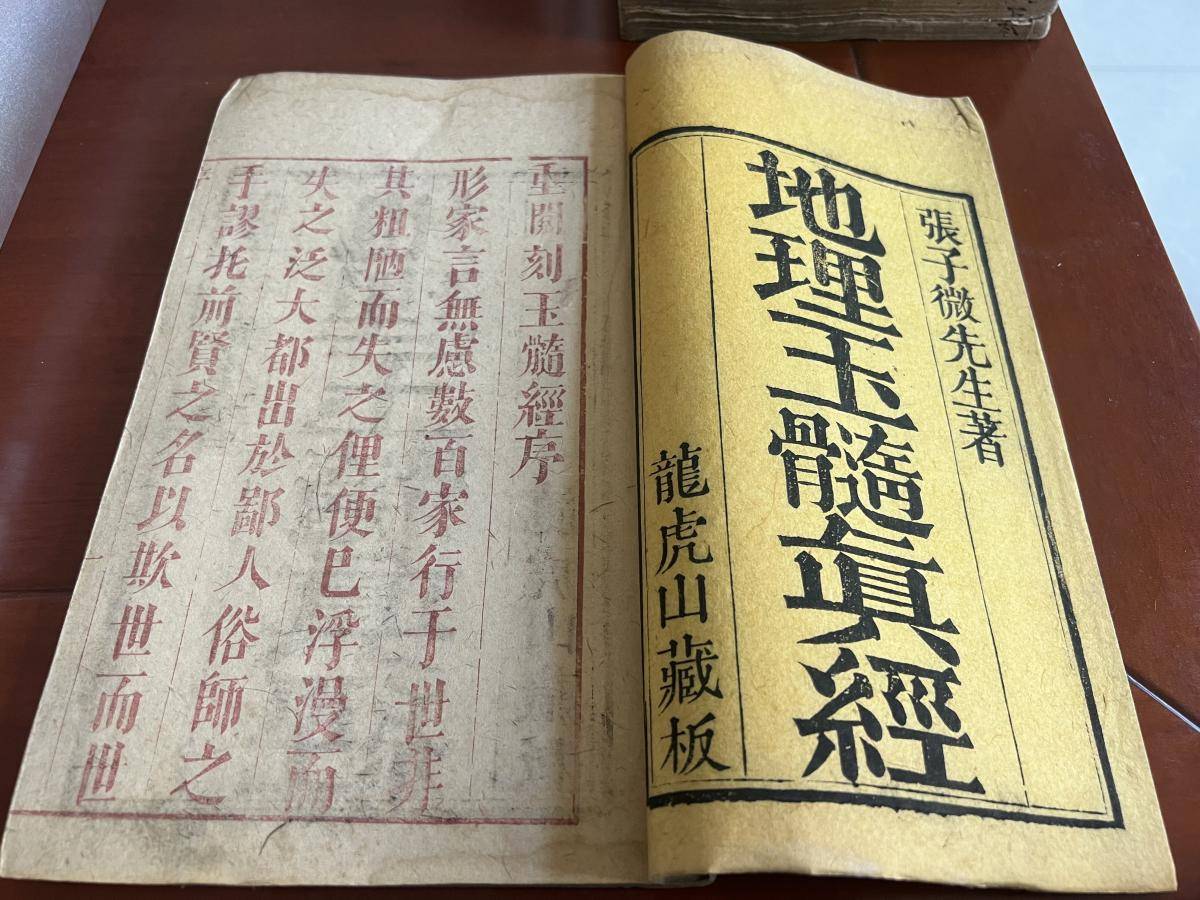 張子微先生著
地理玉髓眞經
龍虎山藏板
重刻玉髓經序
形家言無慮數百家行于世非
其粗陋而失之俚便巳浮漫而
失之泛大都出於鄙人俗師之
手謬托前賢之名以欺世而世